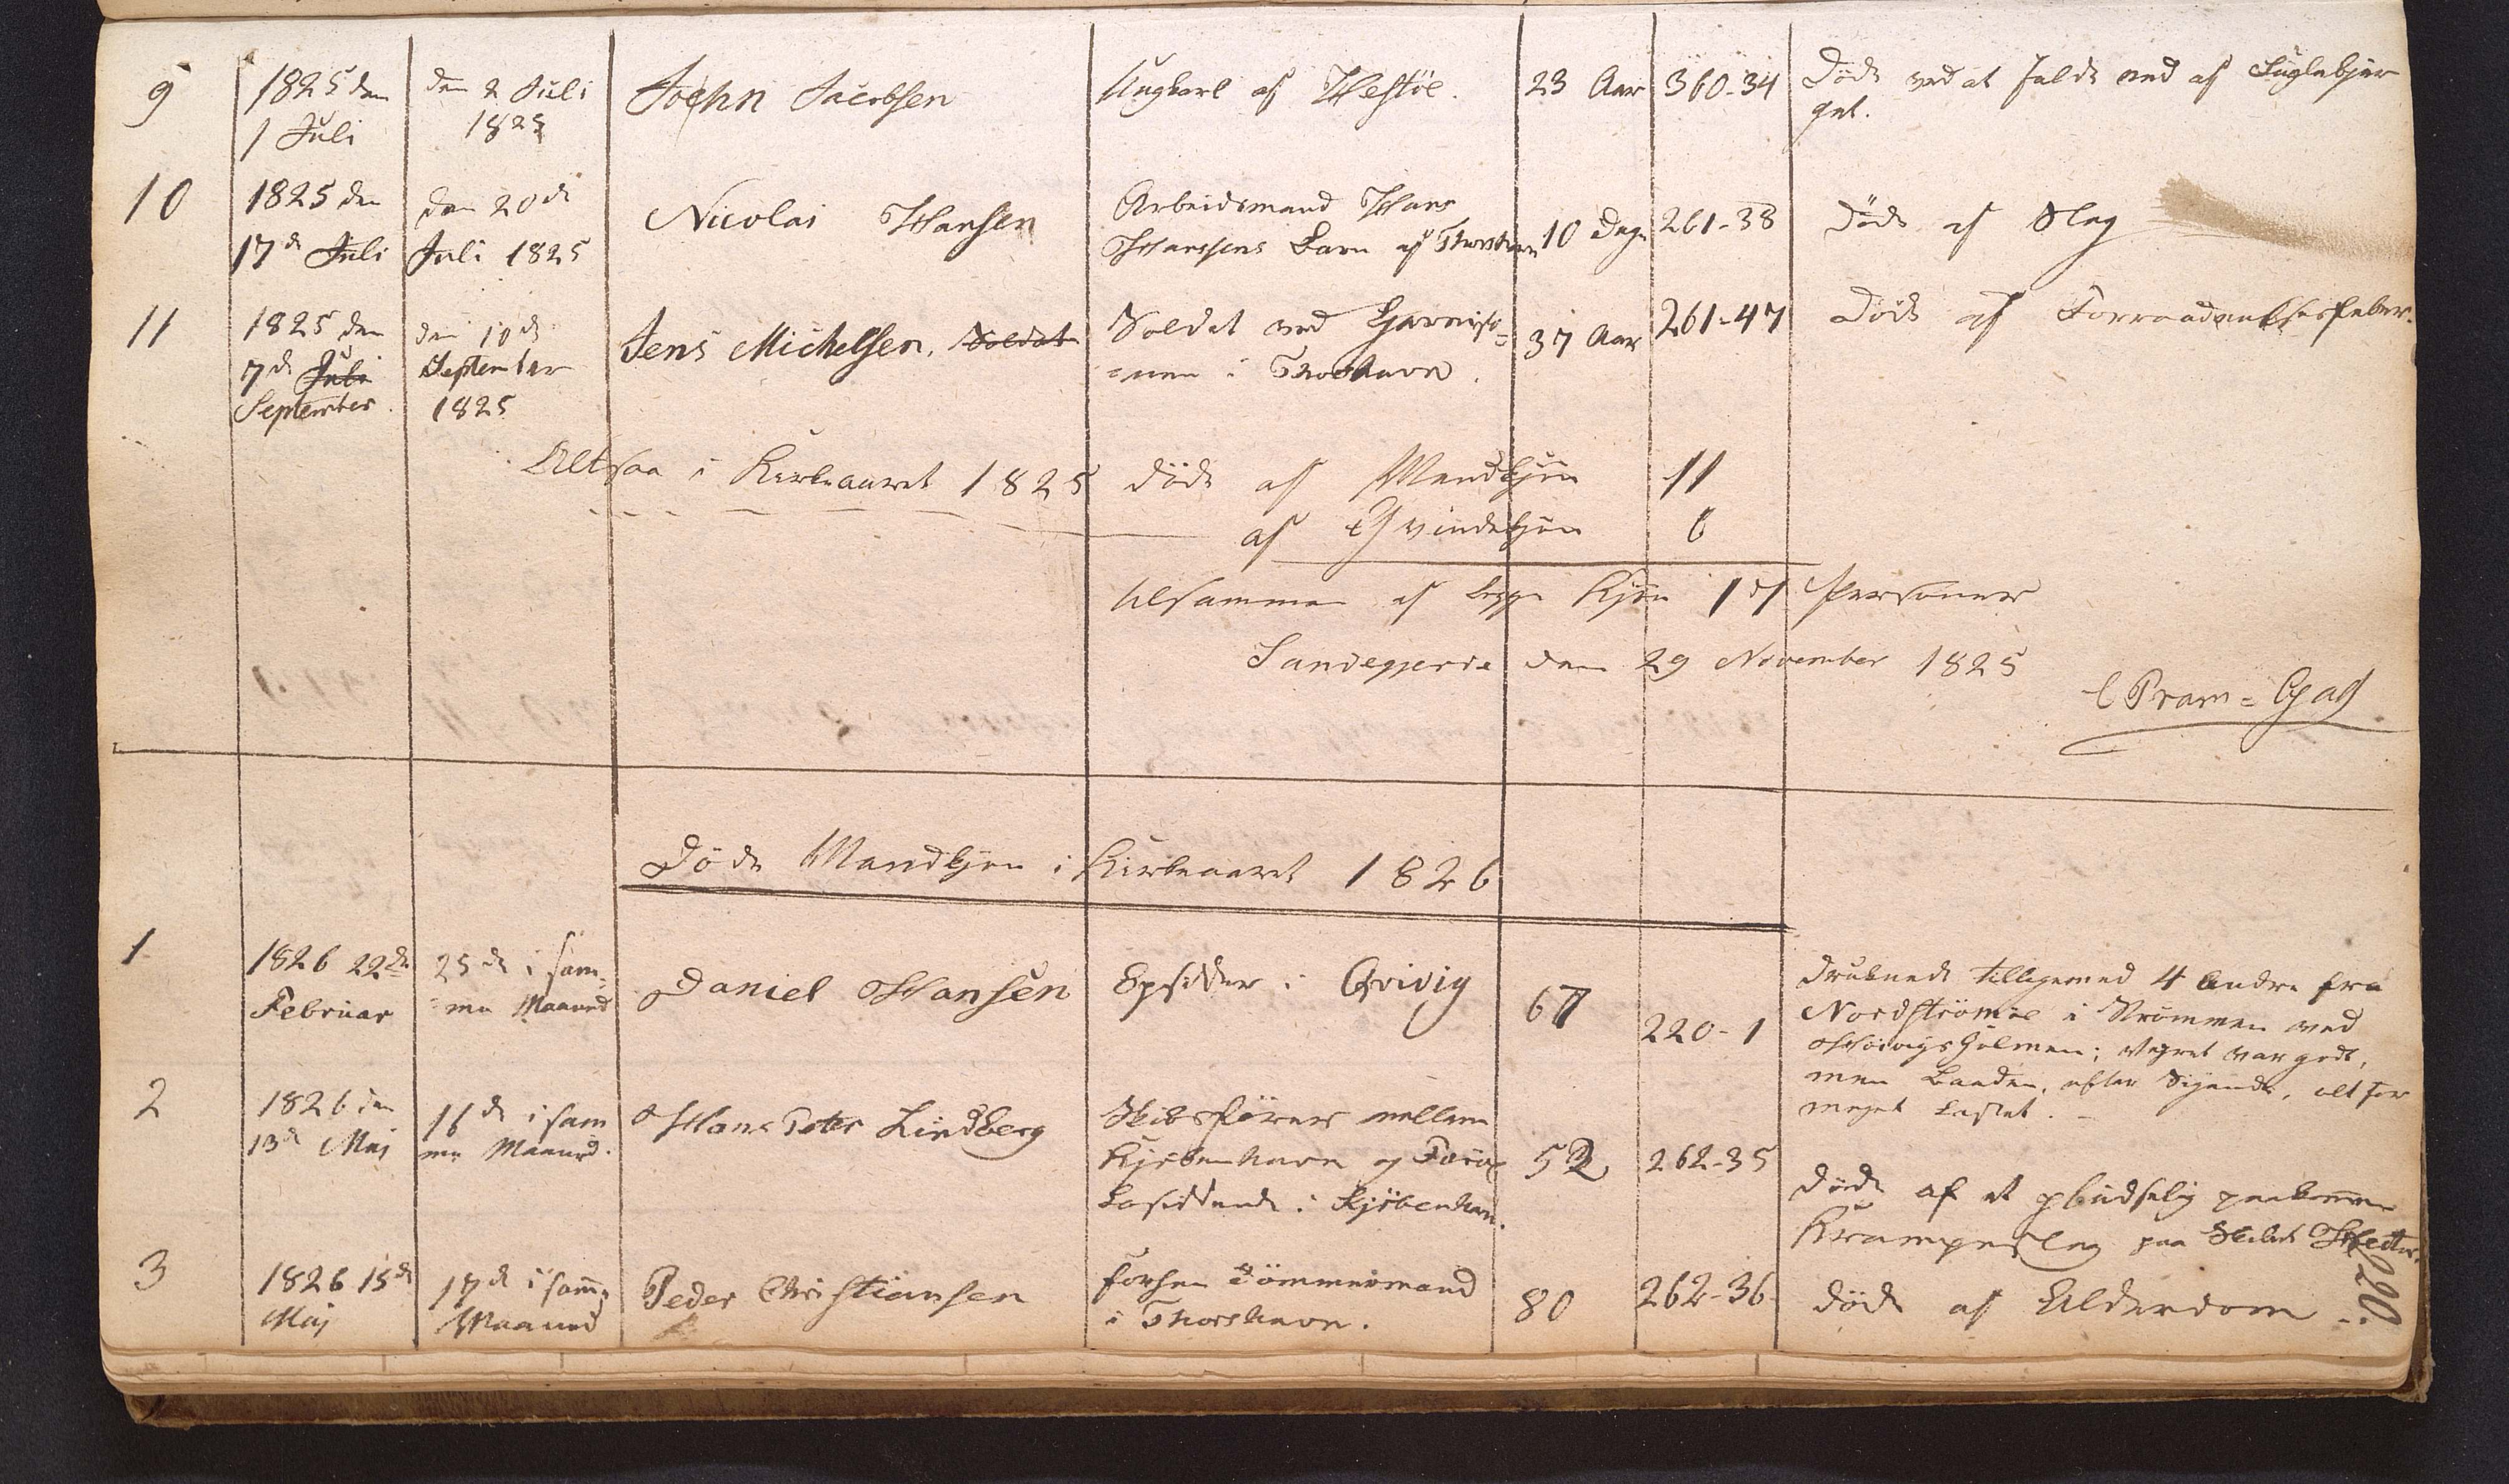 9 1825 den den 2 Juli Joehn Jacobsen Ungkarl af Hestöe. 23 Aar 360-34 Döde ved at falde ned af Fuglebjer
1 Juli 1825 get.
10 1825 den den 20de Nicolai Hansen Arbeidsmand Hans 10 Dage 261-38 Döde af Slag
17de Juli Juli 1825 Hanssens Barn af Thorshavn
11 1825 den den 10de Jens Michelsen. Soldat Soldat ved Garniso= 37 Aar 261-47 Döde af Forraadnelsesfeber.
7de Juli September =nen i Thorshavn.
September 1825
Altsaa i Kirkeaaret 1825 döde af Mandkjön 11
af Qvindekjön 6
tilsammen af begge Kjön 17 Personer
Sandegjerde den 29 November 1825
C Pram=Gad
Döde Mandkjön i Kirkeaaret 1826
1 1826 22de 25de i sam= Daniel Hansen Opsidder i Qvivig 67 220-1 Druknede tilligemed 4 Andre fra
Februar =me Maaned Nordströmöe i Strömmen ved
Hoivigsholmen; Vejret var godt,
men Baaden, efter Sigende, alt for
meget lastet.
2 1826 den 16de i sam Hans Peter Lindberg Skibsförer mellem 52 262-35 Döde af et pludselig paakommen
13de Maj me Maaned. Kjöbenhavn og Færöe Krampeslag paa Skibet Hector.
bosiddende i Kjöbenhavn.
3 1826 15de 17de i samme Peder Christiansen forhen Tömmermand 80 262-36. döde af Alderdom
Maj Maaned i Thorshavn.